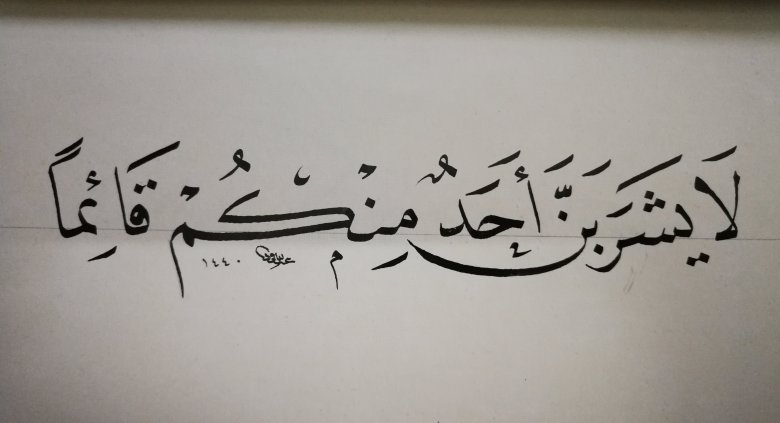 لَا يَشْرَبَنَّ أَحَدٌ مِنْكُمْ قَائِمًا
١٤٤٠